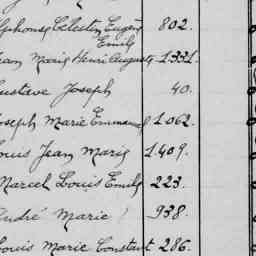 Alphonse Célestin Eugène 802.
Emile
Jean Marie Henri Auguste 1.331.
Gustave Joseph 40.
Joseph Marie Emmanuel 1.062.
Louis Jean Marie 1.409.
Marcel Louis Emile 223.
André Marie 938.
Louis Marie Constant 286.